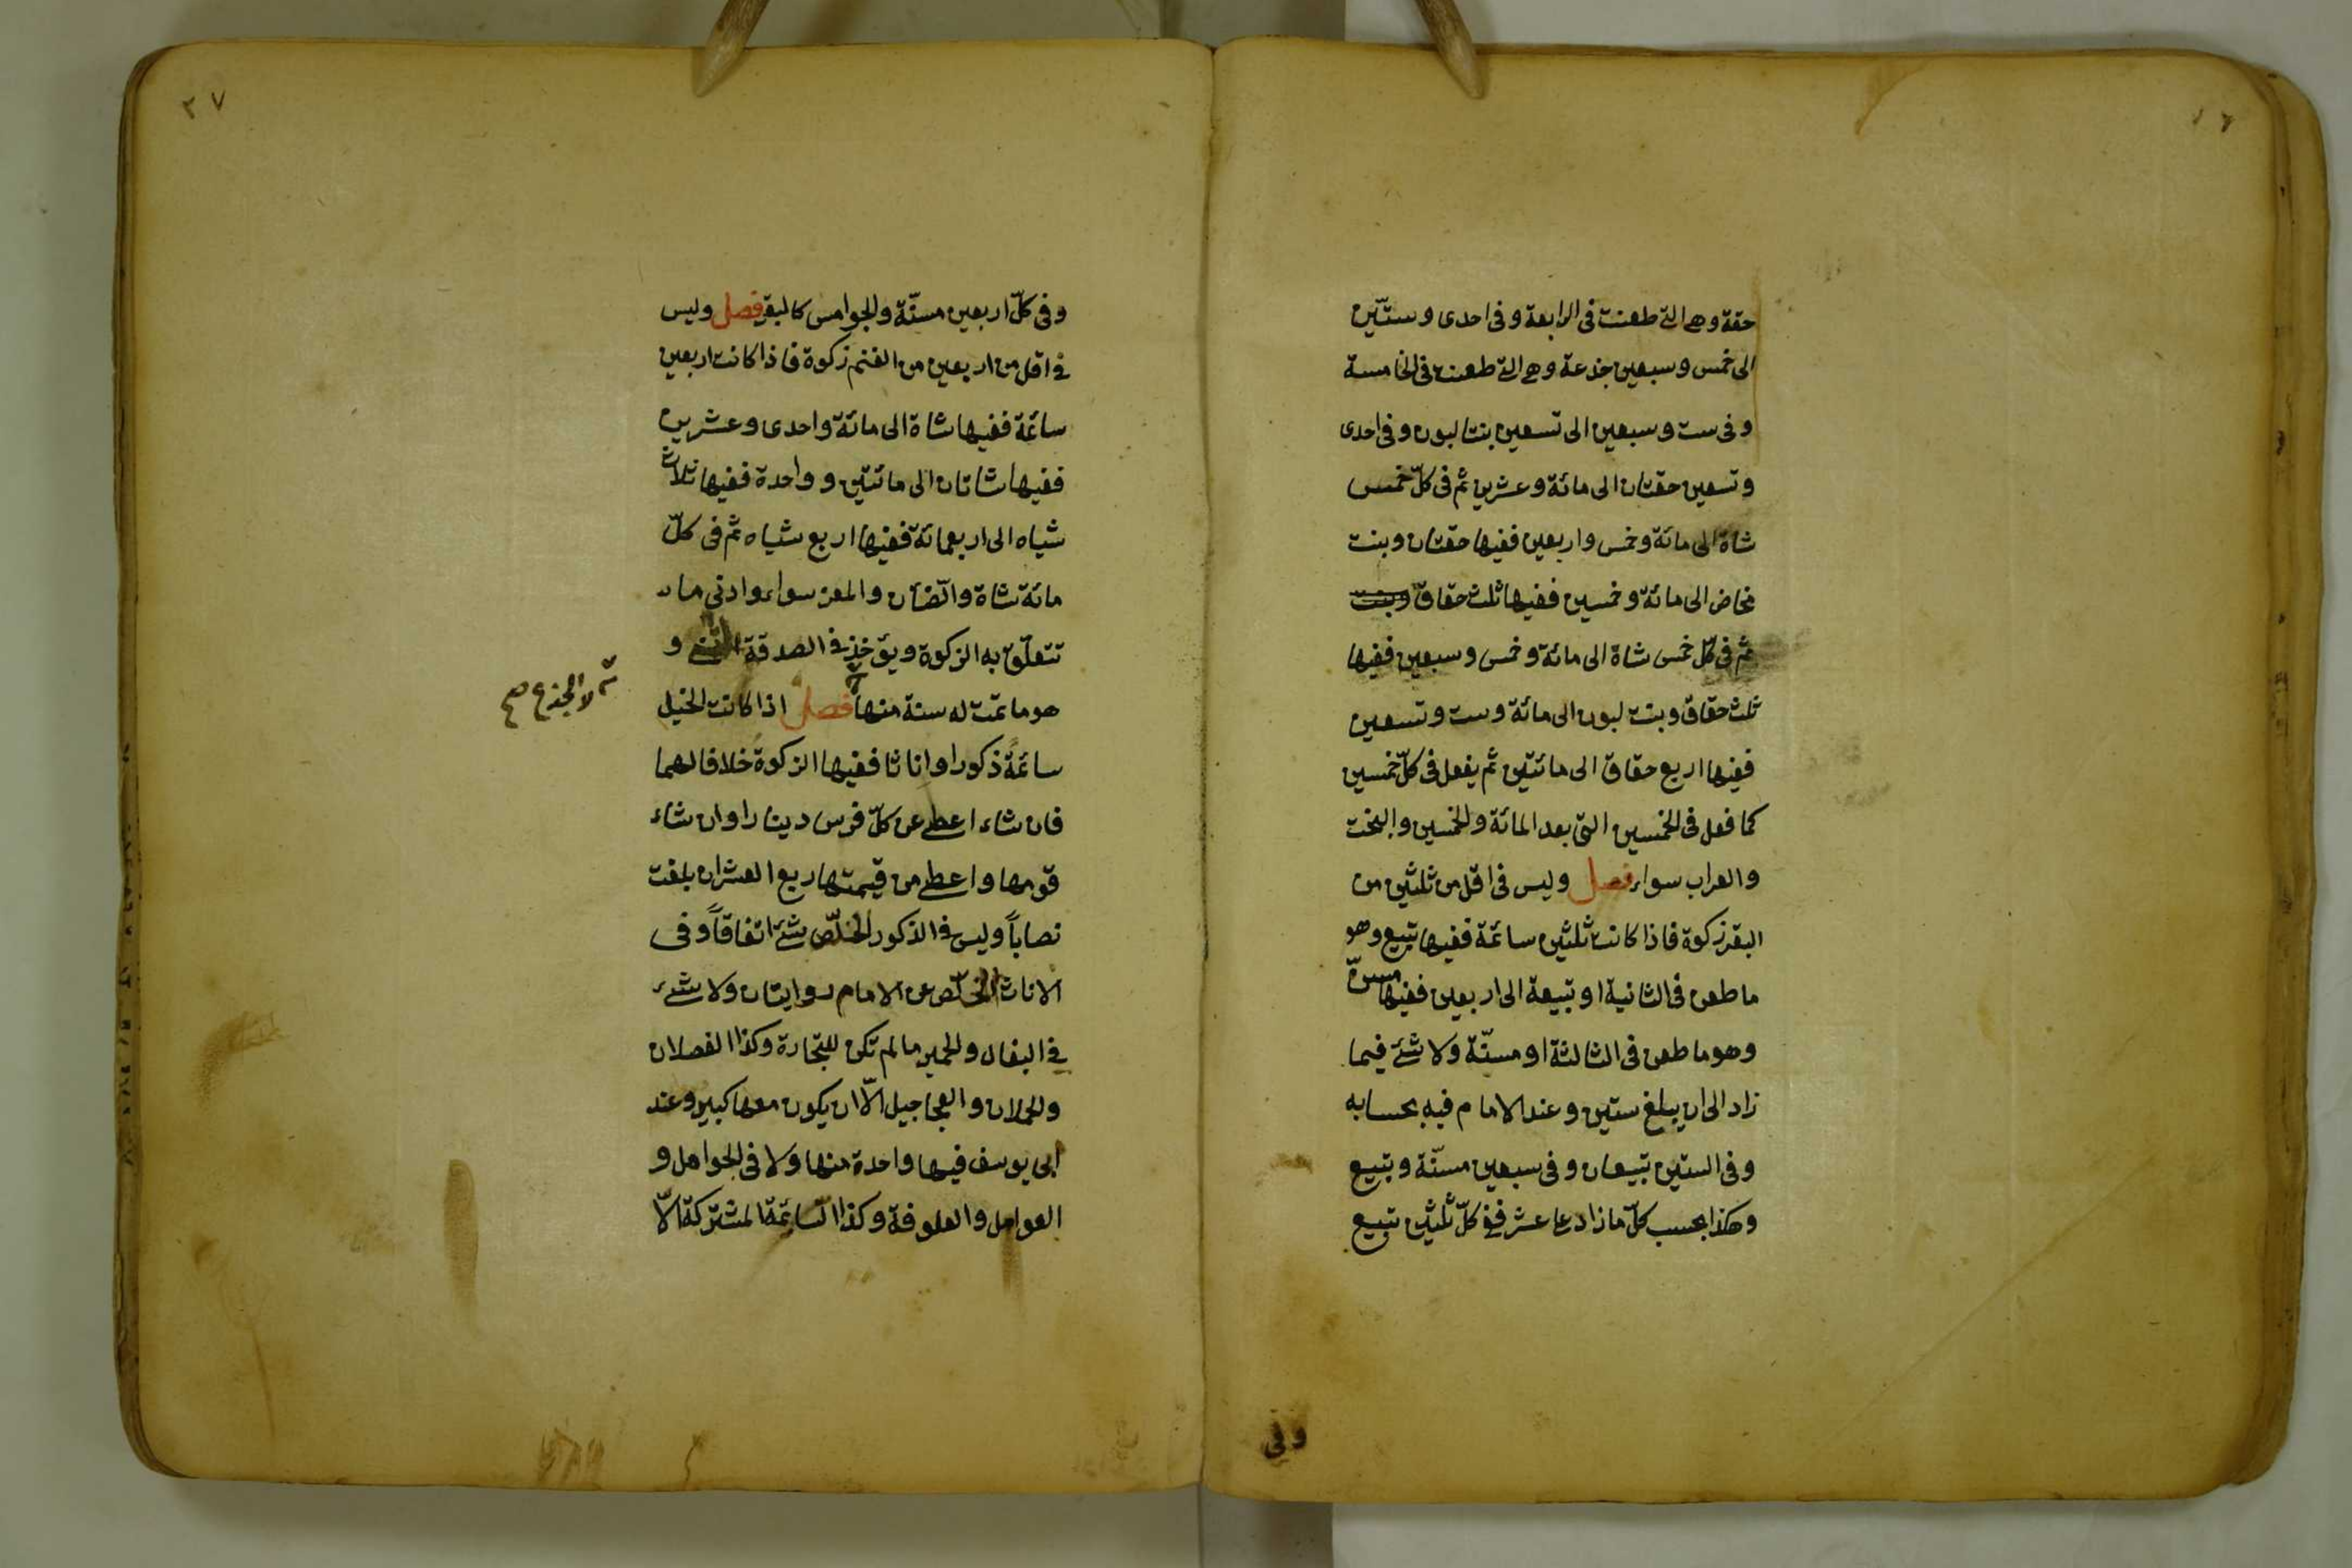 حقة وهى التى طعنت فى الرابعة وفى احدى وستّين
الى خمس وسبعين جذعة وهى التى طعنت فى الخامسة
وفى ست وسبعين الى تسعين بنتا لبون وفى احدى
وتسعين حقتان الى مائة وعشرين ثم فى كلّ خمس
شاة الى مائة وخمس واربعين ففيها حقتان وبنت
مخاض الى مائة وخمسين ففيها ثلث حقاق وبنت
ثم فى كلّ خمس شاة الى مائة وخمس وسبعين ففيها
ثلث حقاق وبنت لبون الى مائة وست وتسعين
ففيها اربع حقاق الى مائتين ثم يفعل فى كلّ خمسين
كما فعل فى الخمسين التى بعد المائة والخمسين والبخت
والعراب سواء فصل وليس فى اقل من ثلثين من
البقر زكوة فاذا كانت ثلثين سائمة ففيها تبيع وهو
ما طعن فى الثانية او تبيعة الى اربعين ففيها مسن
وهو ما طعن فى الثالثة او مسنّة ولا شئ فيما
زاد الى ان يبلغ ستين وعند الامام فيه بحسابه
وفى الستين تبيعان وفى سبعين مسنّة وتبيع
وهكذا يحسب كلّ ما زاد عا عشر ففى كلّ ثلثين تبيع
وفى
٢٧
وفى كلّ اربعين مسنّة والجواميس كالبقر فصل وليس
فى اقل من اربعين من الغنم زكوة فاذا كانت اربعين
سائمة ففيها شاة الى مائة واحدى وعشرين
ففيها شاتان الى مائتين وواحدة ففيها ثلاث
شياه الى اربعمائة ففيها اربع شياه ثم فى كلّ
مائة شاة والضّأن والمعز سواء وادنى ما
تتعلّق به الزكوة ويؤخذ فى الصدقة الثنى و
هو ما تمت له سنة منها فصل اذا كانت الخيل
لا الجذع صح
سائمة ذكورا واناثا ففيها الزكوة خلافا لهما
فان شاء اعطى عن كلّ فرس دينارا وان شاء
قومها واعطى من قيمتها ربع العشر ان بلغت
نصاباً وليس فى الذكور الخلّص شئ اتفاقاً وفى
الاناث الخلّص عن الامام روايتان ولا شئ
فى البغال والحمير ما لم تكن للتجارة وكذا الفصلان
والحملان والعجاجيل الّا ان يكون معها كبير وعند
ابى يوسف فيها واحدة منها ولا فى الحوامل و
العوامل والعلوفة وكذا السّائمة المشتركة الّا